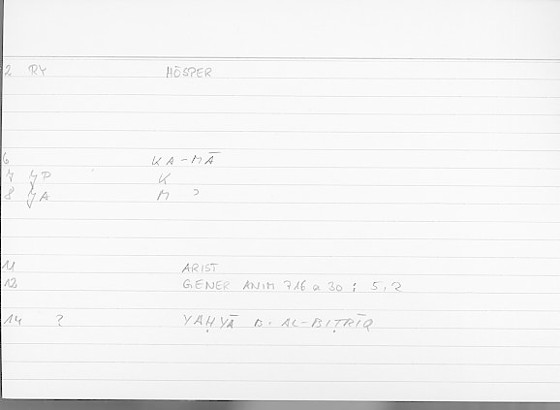 2 RY HÖSPER
6 KA-MĀ
7 YP K
8 YA M ?
11 ARIST
12 GENER ANIM 716 a 30 ; 5,2
14 ? YAḤYĀ B. AL-BIṬRĪQ